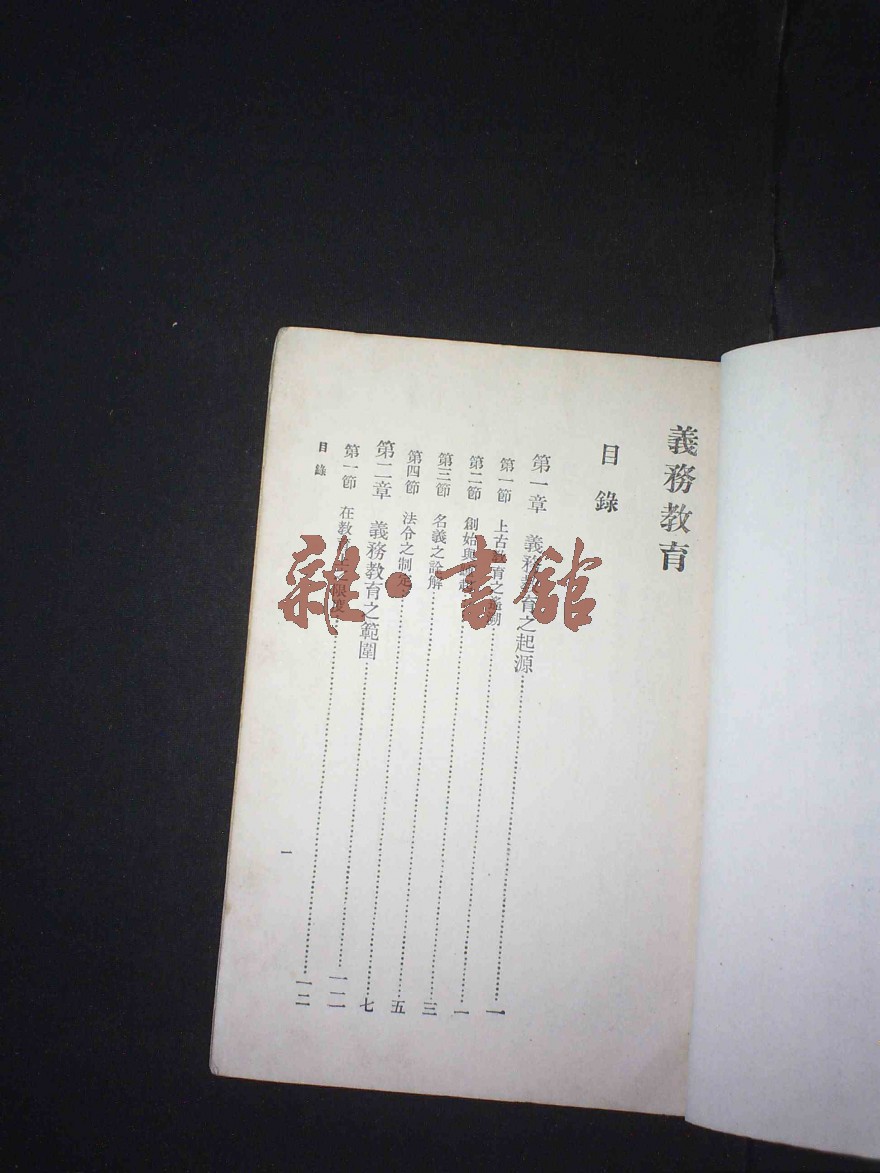 義務教育
目錄
第一章 義務教育之起源……一
第一節 上古教育之……一
第二節 創始與……三
第三節 名義之詮解……五
第四節 法令之制定……七
第二章 義務教育之範圍……一二
第一節 在教……一二
目錄
一
雜·書館